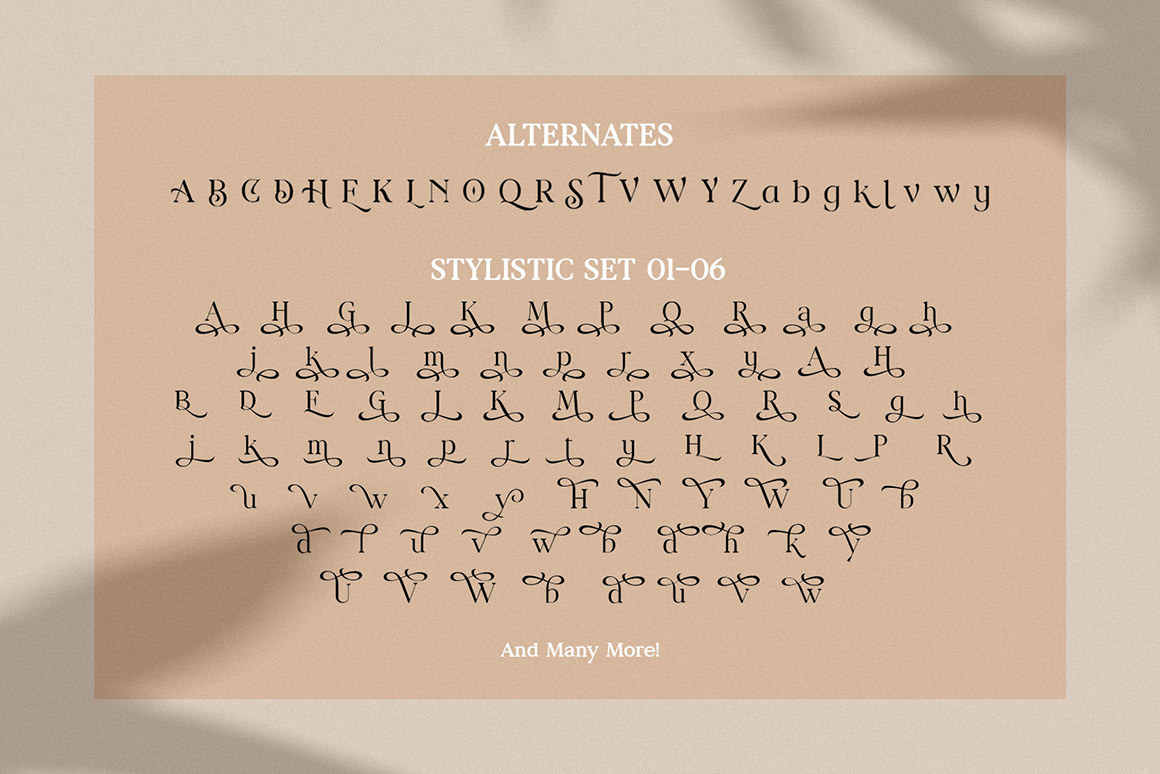 ALTERNATES
A B C D H E K L N O Q R S T V W Y Z a b g k l v w y
STYLISTIC SET 01-06
A H G J K M P Q R a g h
j k l m n p r x y A H
B D E G J K M P Q R S g h
j k m n p r t y H K L P R
u v w x y H N Y W U b
d l u v w b d h k y
U V W b d u v w
And Many More!